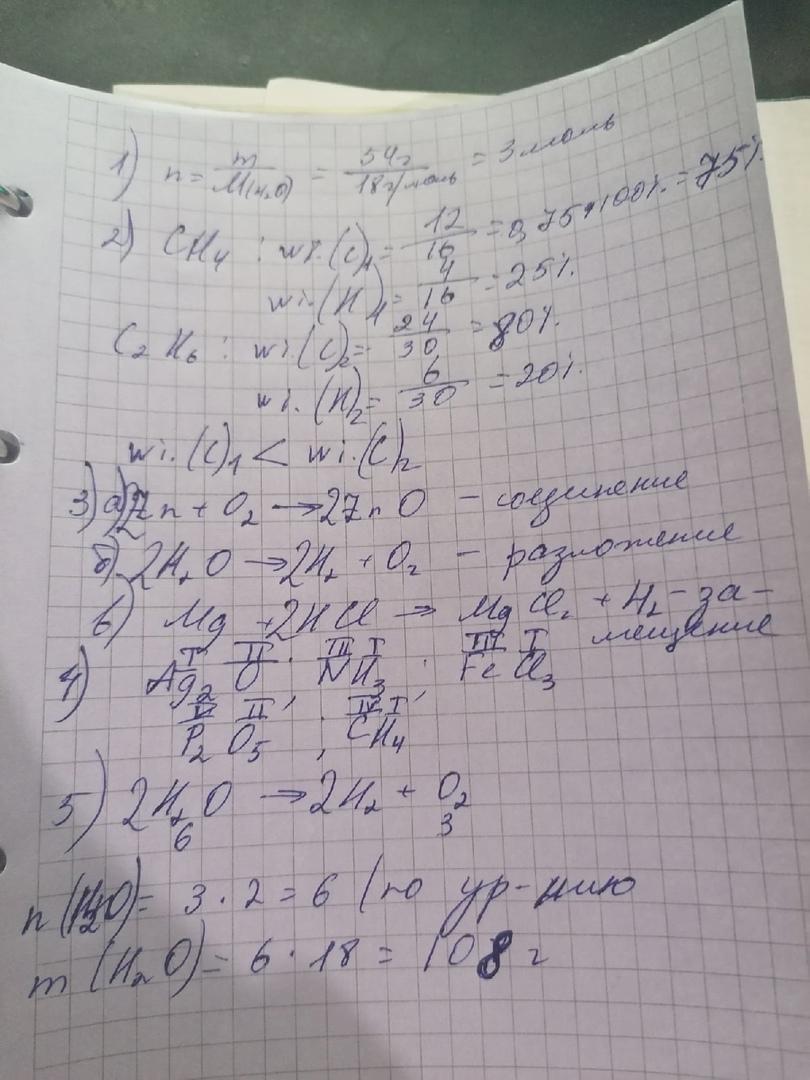 1) n = m/M(H₂O) = 54г/18г/моль = 3 моль
2) CH₄ : wi.(C)₁ = 12/16 = 0,75*100% = 75%.
wi.(H)₁ = 4/16 = 25%.
C₂H₆ : wi.(C)₂ = 24/30 = 80%.
wi.(H)₂ = 6/30 = 20%.
wi.(C)₁ < wi.(C)₂
3) а) 2Zn + O₂ → 2ZnO – соединение
б) 2H₂O → 2H₂ + O₂ – разложение
в) Mg + 2HCl → MgCl₂ + H₂ – за-
мещение
I II III I III I
4) Ag₂O, NH₃, FeCl₃
V II IV I
P₂O₅, CH₄
5) 2H₂O → 2H₂ + O₂
6 3
n(H₂O) = 3 · 2 = 6 (по ур-нию
m(H₂O) = 6 · 18 = 108 г